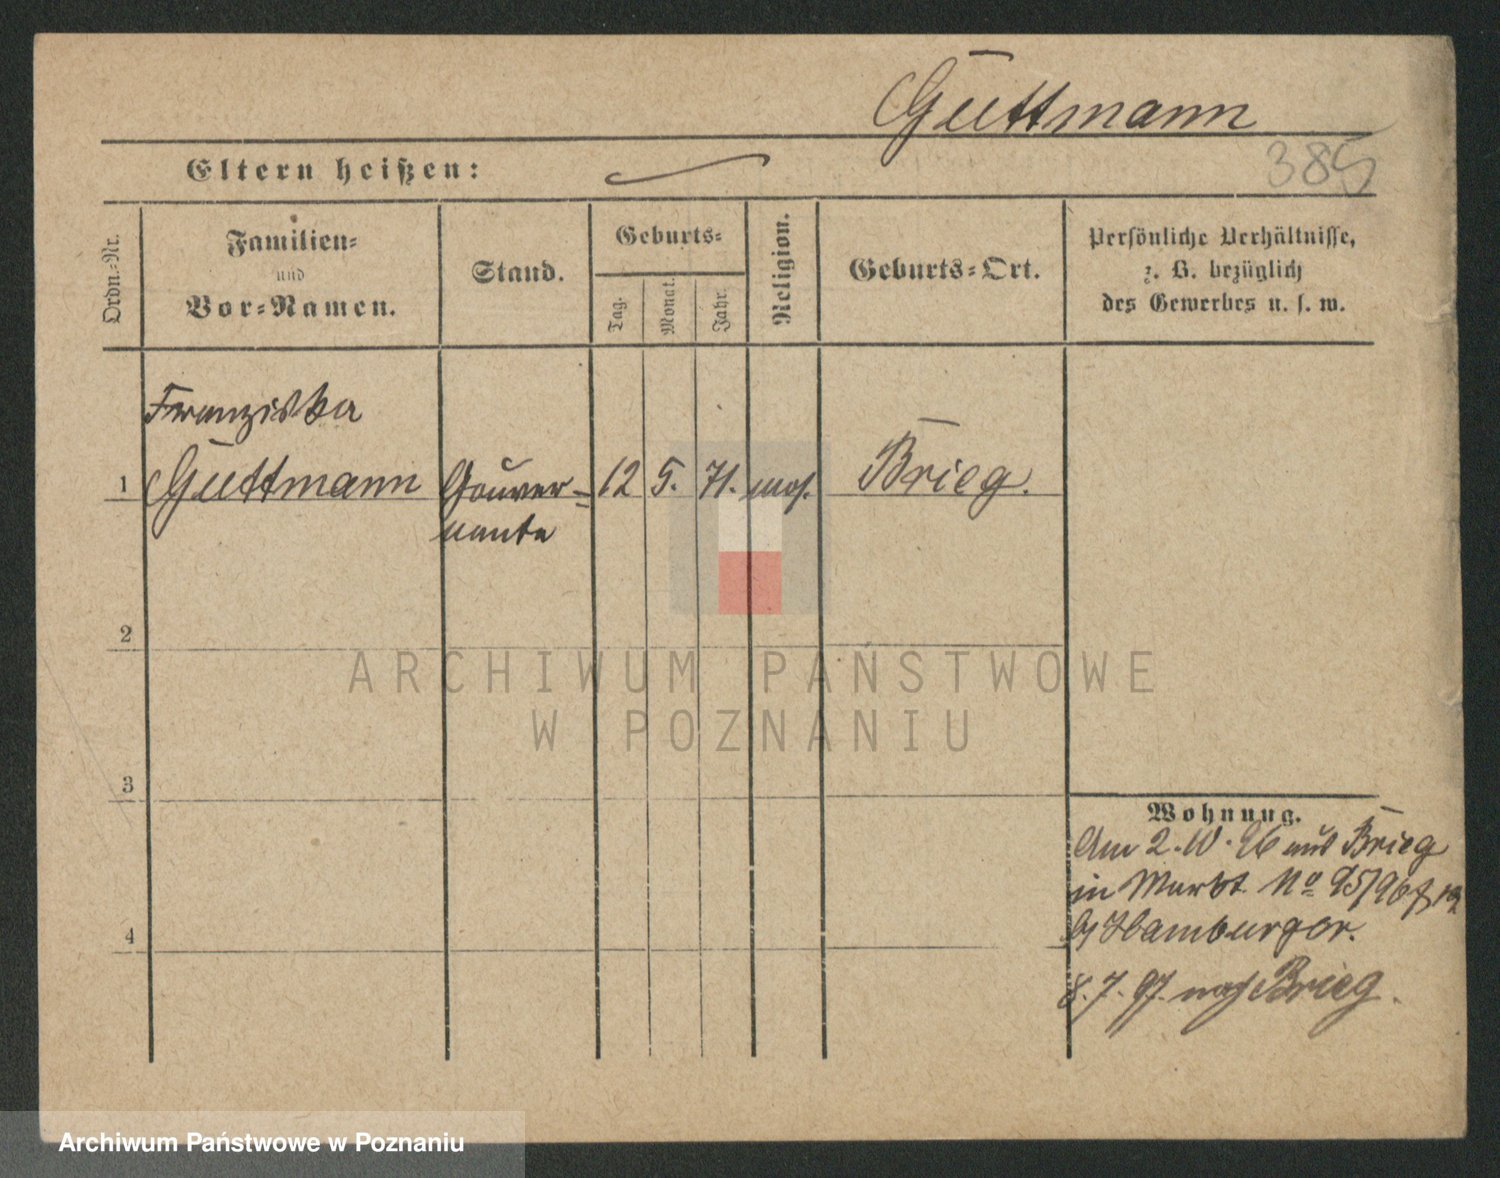 Guttmann
385
Eltern heißen:
Ordn.-Nr.
Familien-
und
Vor-Namen.
Stand.
Geburts-
Tag.
Monat.
Jahr.
Religion.
Geburts-Ort.
Persönliche Verhältnisse,
z. B. bezüglich
des Gewerbes u. s. w.
Franziska
1 Guttmann Gouver= 12 5. 71. mos. Brieg.
nante
2
ARCHIWUM PAŃSTWOWE
W POZNANIU
3
Wohnung.
Am 2.10.96 aus Brieg
in Markt No 95/96
b/ Hamburger.
4
8.7.97. nach Brieg.
Archiwum Państwowe w Poznaniu